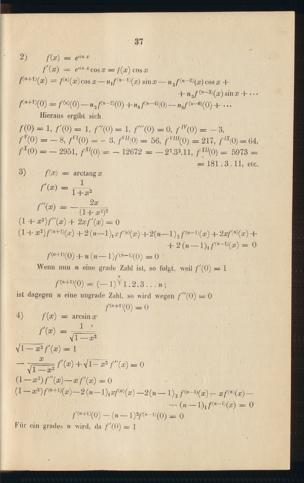 37
2) f(x) = e^{sin x}
f'(x) = e^{sin x} cos x = f(x) cos x
f^{(n+1)}(x) = f^{(n)}(x) cos x − n_1 f^{(n−1)}(x) sin x − n_2 f^{(n−2)}(x) cos x +
+ n_3 f^{(n−3)}(x) sin x + ⋯
f^{(n+1)}(0) = f^{(n)}(0) − n_2 f^{(n−2)}(0) + n_4 f^{(n−4)}(0) − n_6 f^{(n−6)}(0) + ⋯
Hieraus ergibt sich
f(0) = 1, f'(0) = 1, f''(0) = 1, f'''(0) = 0, f^{IV}(0) = − 3,
f^{V}(0) = − 8, f^{VI}(0) = − 3, f^{VII}(0) = 56, f^{VIII}(0) = 217, f^{IX}(0) = 64,
f^{X}(0) = − 2951, f^{XI}(0) = − 12672 = − 2^7.3^2.11, f^{XII}(0) = 5973 =
= 181 . 3 . 11, etc.
3) f(x) = arctang x
f'(x) = 1/(1+x²)
f''(x) = − 2x/(1+x²)²
(1 + x²)f''(x) + 2x f'(x) = 0
(1 + x²)f^{(n+1)}(x) + 2(n−1)_1 x f^{(n)}(x) + 2(n−1)_2 f^{(n−1)}(x) + 2x f^{(n)}(x) +
+ 2 (n−1)_1 f^{(n−1)}(x) = 0
f^{(n+1)}(0) + n(n−1) f^{(n−1)}(0) = 0
Wenn nun n eine grade Zahl ist, so folgt, weil f'(0) = 1
f^{(n+1)}(0) = (−1)^{n/2} 1.2.3 ... n;
ist dagegen n eine ungrade Zahl, so wird wegen f''(0) = 0
f^{(n+1)}(0) = 0
4) f(x) = arcsin x
f'(x) = 1/√(1−x²)
√(1−x²) f'(x) = 1
− x/√(1−x²) f'(x) + √(1−x²) f''(x) = 0
(1−x²)f''(x) − x f'(x) = 0
(1−x²)f^{(n+1)}(x) − 2(n−1)_1 x f^{(n)}(x) − 2(n−1)_2 f^{(n−1)}(x) − x f^{(n)}(x) −
− (n−1)_1 f^{(n−1)}(x) = 0
f^{(n+1)}(0) − (n−1)² f^{(n−1)}(0) = 0
Für ein grades n wird, da f'(0) = 1